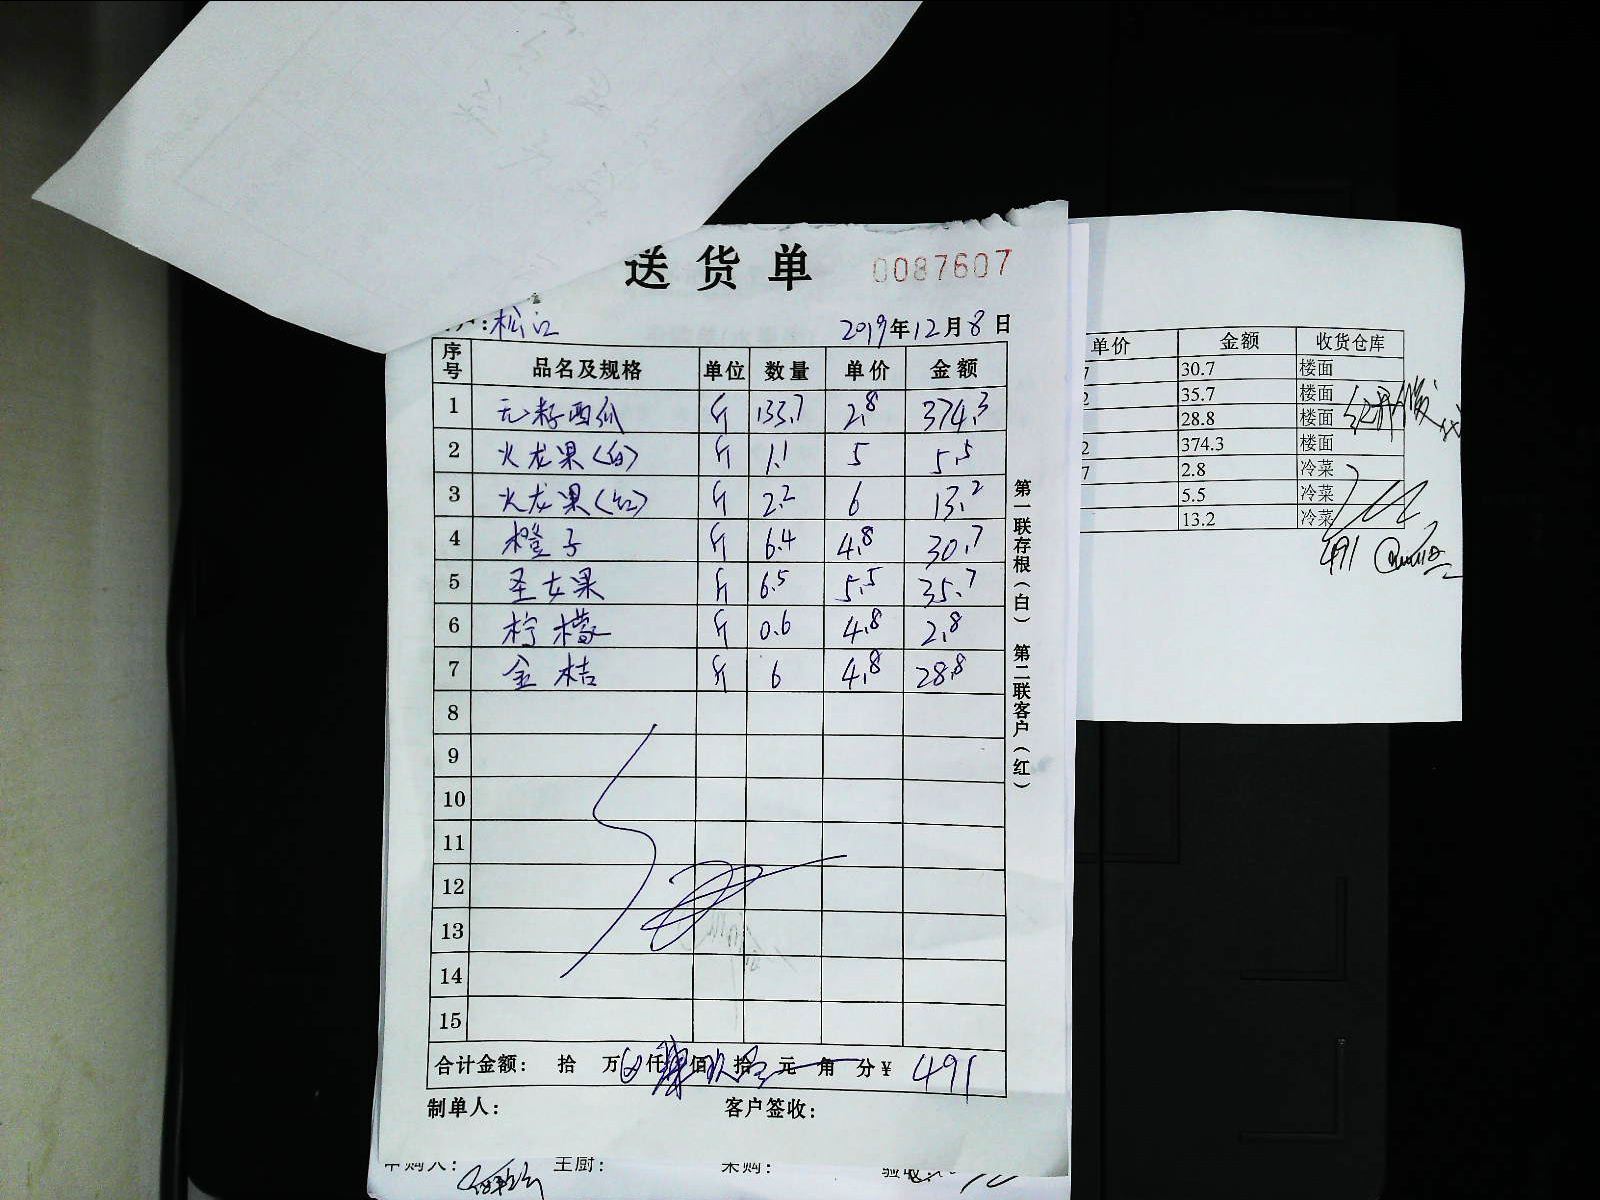 送货单 0087607
:松江 2019年12月8日
序号 品名及规格 单位 数量 单价 金额
1 无籽西瓜 斤 133.7 2.8 374.3
2 火龙果(白) 斤 1.1 5 5.5
3 火龙果(红) 斤 2.2 6 13.2
4 橙子 斤 6.4 4.8 30.7
5 圣女果 斤 6.5 5.5 35.7
6 柠檬 斤 0.6 4.8 2.8
7 金桔 斤 6 4.8 28.8
8
9
10
11
12
13
14
15
合计金额: 拾 万 仟 佰 拾 元 角 分¥ 491
制单人: 客户签收:
第一联存根(白) 第二联客户(红)
申购人: 主厨: 采购: 验收:
单价 金额 收货仓库
7 30.7 楼面
2 35.7 楼面
28.8 楼面
2 374.3 楼面
7 2.8 冷菜
5.5 冷菜
13.2 冷菜
491